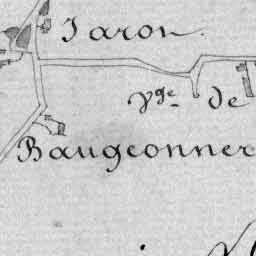 Jaron
Vge de
Baugeonner